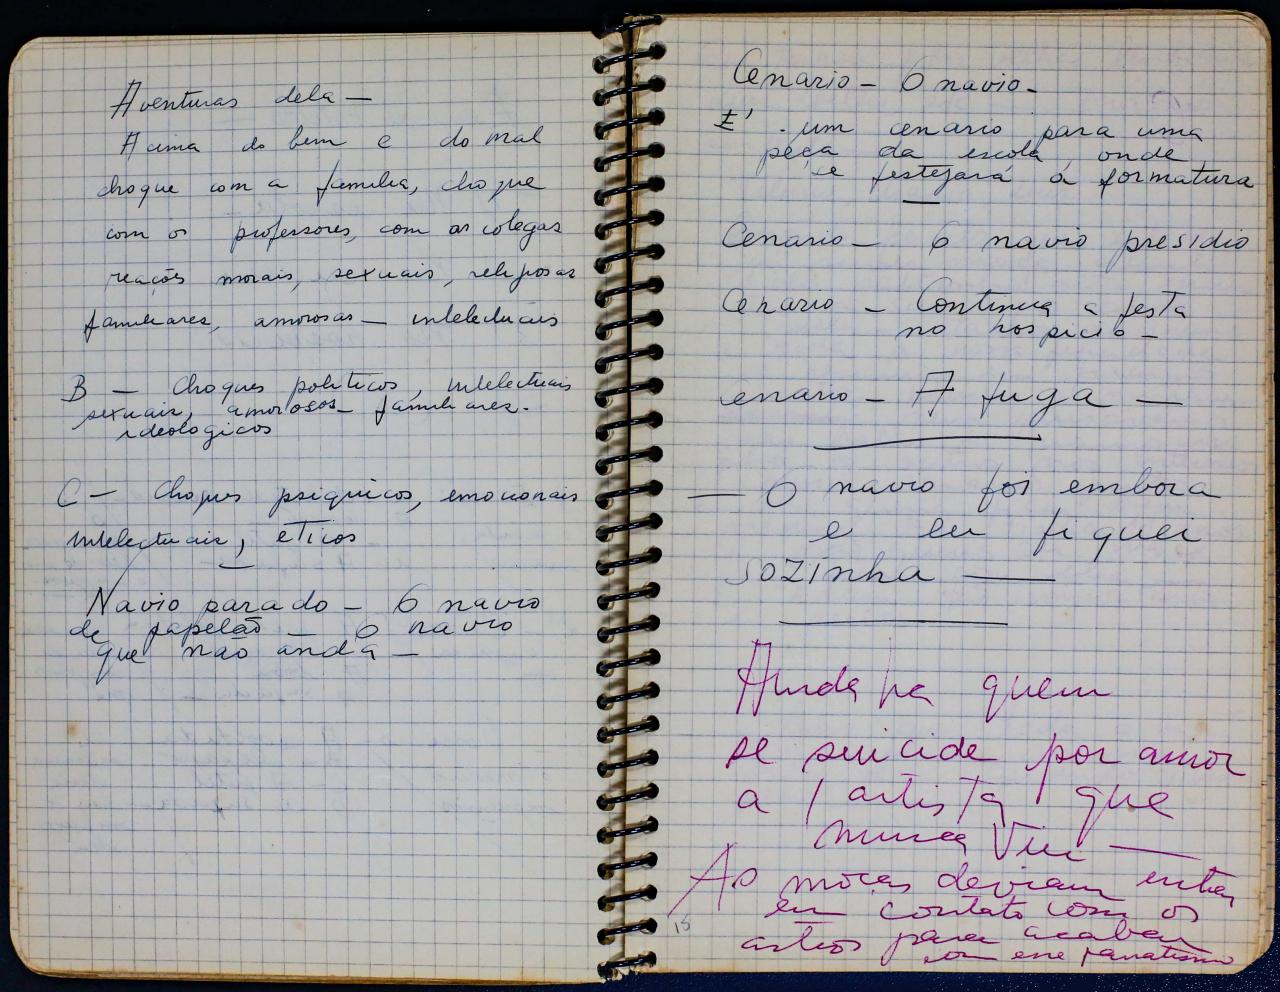 Aventuras dela —
Acima do bem e do mal
choque com a familia, choque
com os professores, com as colegas
reações morais, sexuais, religiosas
familiares, amorosas — intelectuais
B — Choques politicos, intelectuais
sexuais, amorosos — familiares.
ideologicos
C — Choques psiquicos, emocionais
intelectuais, eticos
Navio parado — O navio
de papelão — o navio
que não anda —
Cenario — O navio —
É um cenario para uma
peça da escola, onde
se festejará a formatura
Cenario — O navio presidio
Cenario — Continua a festa
no hospicio —
enario — A fuga —
— O navio foi embora
e eu fiquei
sozinha —
Ainda ha quem
se suicide por amor
a 1 artista que
nunca viu —
As moças deviam entrar
em contato com os
astros para acabar
com esse fanatismo
15